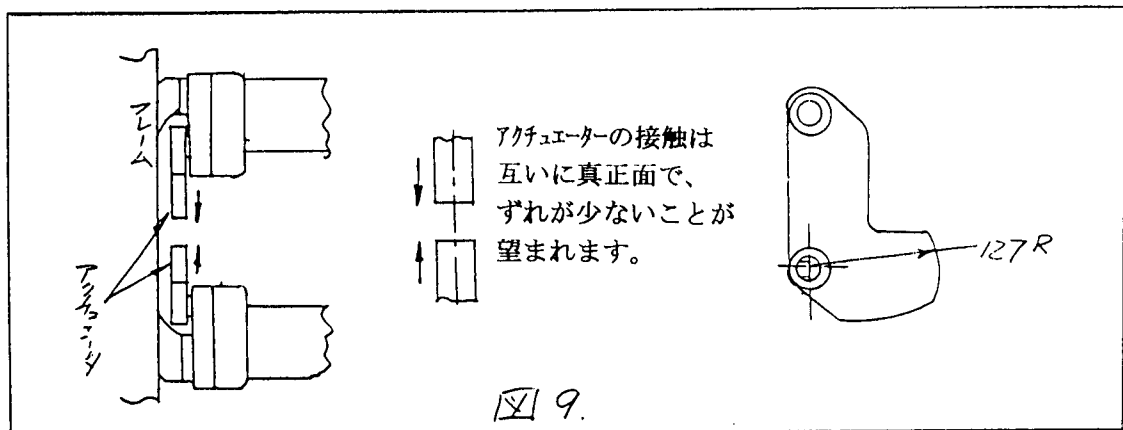 フレーム
アクチュエータ
アクチュエーターの接触は
互いに真正面で、
ずれが少ないことが
望まれます。
127R
図9.